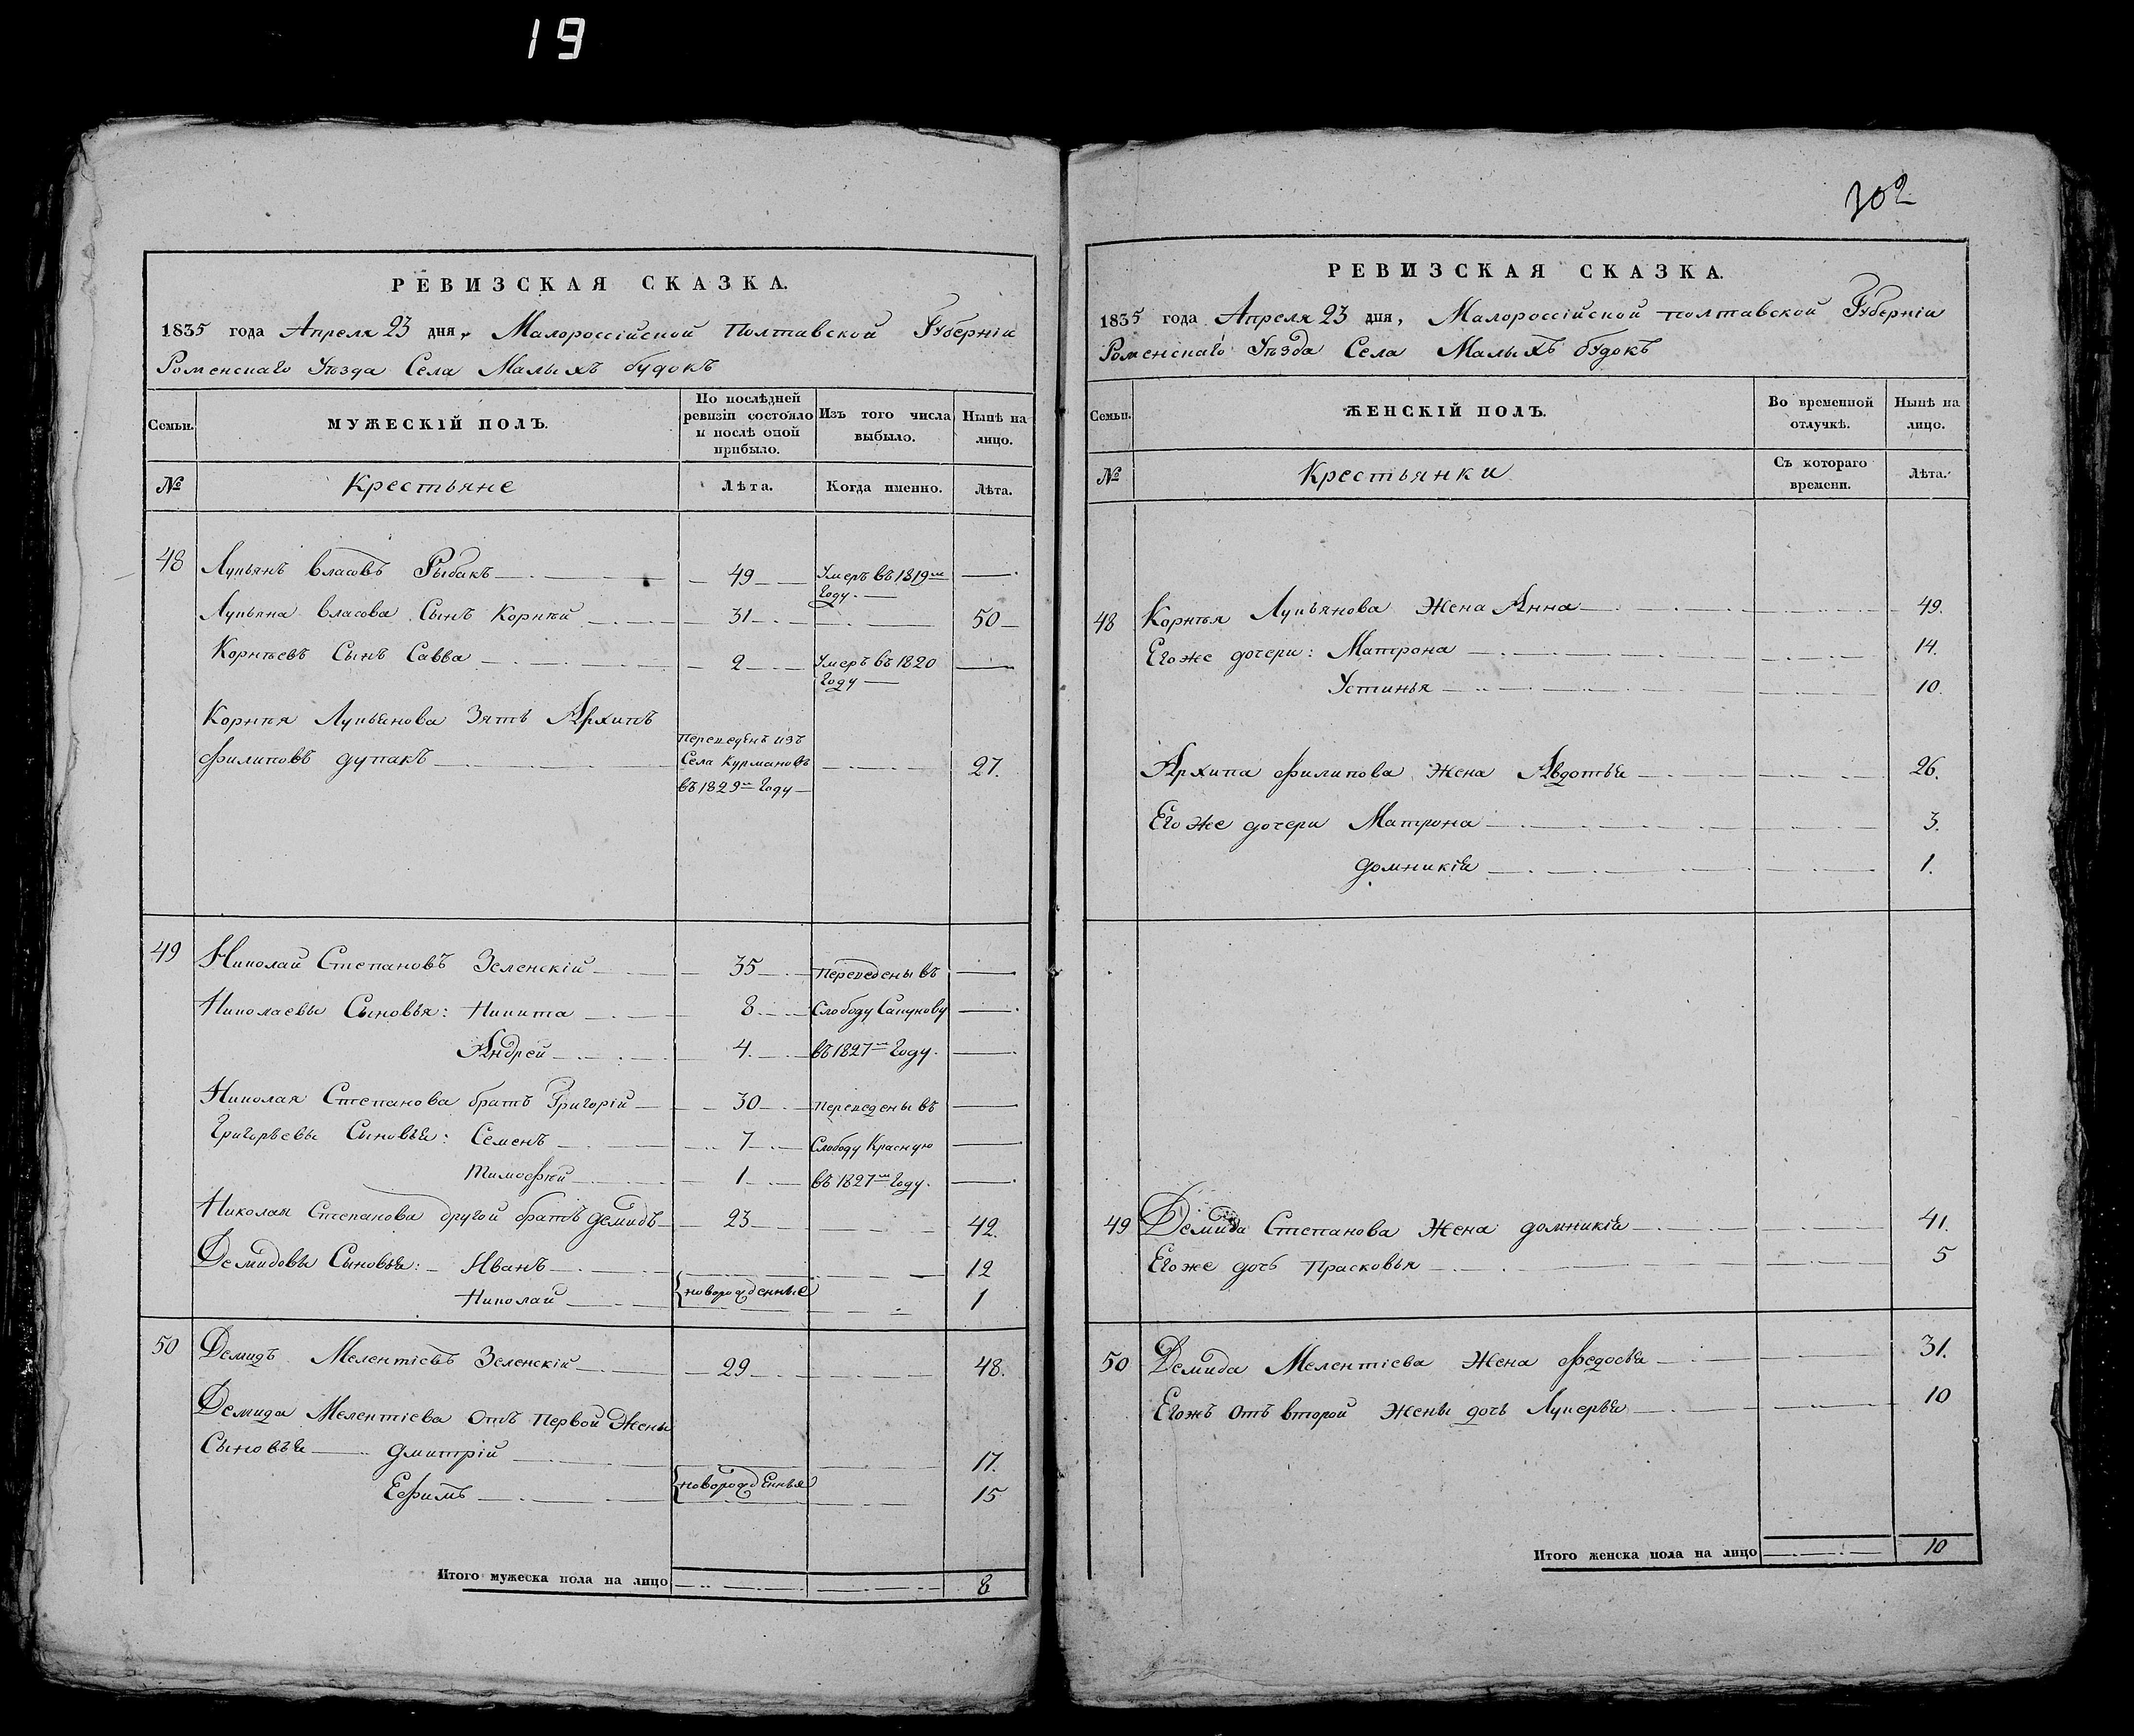 19
РЕВИЗСКАЯ СКАЗКА.
1835 года Апреля 23 дня, Малороссійской Полтавской Губерніи
Роменскаго Уѣзда Села Малыхъ будокъ
Семьи.
МУЖЕСКІЙ ПОЛЪ.
По послѣдней ревизіи состояло и послѣ оной прибыло.
Изъ того числа выбыло.
Нынѣ на лицо.
№
Крестьяне
Лѣта.
Когда именно.
Лѣта.
48 Лупьянъ власовъ Рыбакъ 49 Умеръ въ 1819м году.
Лупьяна власова Сынъ Корнѣй 31 50
Корнѣевъ Сынъ Савва 2 Умеръ въ 1820 году
Корнѣя Лупьянова Зять Архипъ
филиповъ дупакъ Переведенъ изъ Села Курмановъ въ 1829м году 27.
49 Николай Степановъ Зеленскій 35 переведены въ
Николаевы Сыновья: Никита 8 Слободу Сапунову
Андрей 4 въ 1827м году.
Николая Степанова братъ Григорій 30 переведены въ
Григорьевы Сыновья: Семенъ 7 Слободу Красную
тимофѣй 1 въ 1827м году.
Николая Степанова другой братъ демидъ 23 42.
Демидовы Сыновья: Иванъ новорожденные 12
Николай 1
50 Демидъ Мелентіевъ Зеленскій 29 48.
Демида Мелентіева Отъ первой Жены
Сыновья дмитрій 17.
Ефимъ новорожденныя 15
Итого мужеска пола на лицо 8
302
РЕВИЗСКАЯ СКАЗКА.
1835 года Апреля 23 дня, Малороссійской полтавской Губерніи
Роменскаго Уѣзда Села Малыхъ будокъ
Семьи.
ЖЕНСКІЙ ПОЛЪ.
Во временной отлучкѣ.
Нынѣ на лицо.
№
Крестьянки
Съ котораго времени.
Лѣта.
48 Корнѣя Лупьянова Жена Анна 49.
Егоже дочери: Матрона 14.
Устинья 10.
Архипа филипова Жена Авдотья 26.
Егоже дочери Матрона 3.
домникія 1.
49 Демида Степанова Жена домникія 41.
Егоже дочь Прасковья 5
50 Демида Мелентіева Жена федосья 31.
Егожъ Отъ второй Жены дочь Лукерья 10
Итого женска пола на лицо 10